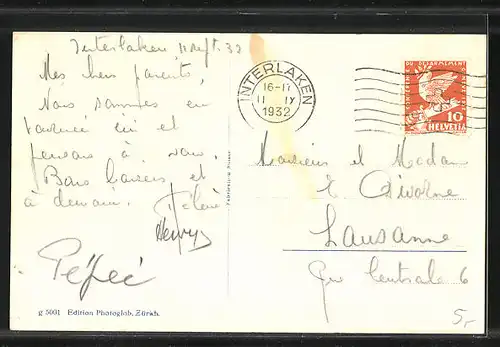 Interlaken 11 sept. 32
Mes chers parents,
Nous sommes en
tournée ici et
pensons à vous.
Bons baisers et
à demain.
Henry
INTERLAKEN
16-17
11 IX
1932
DU DESARMEMENT
10
HELVETIA
Monsieur et Madame
E Divorne
Lausanne
Rue Centrale 6
g 5001 Edition Photoglob, Zürich.
5,-